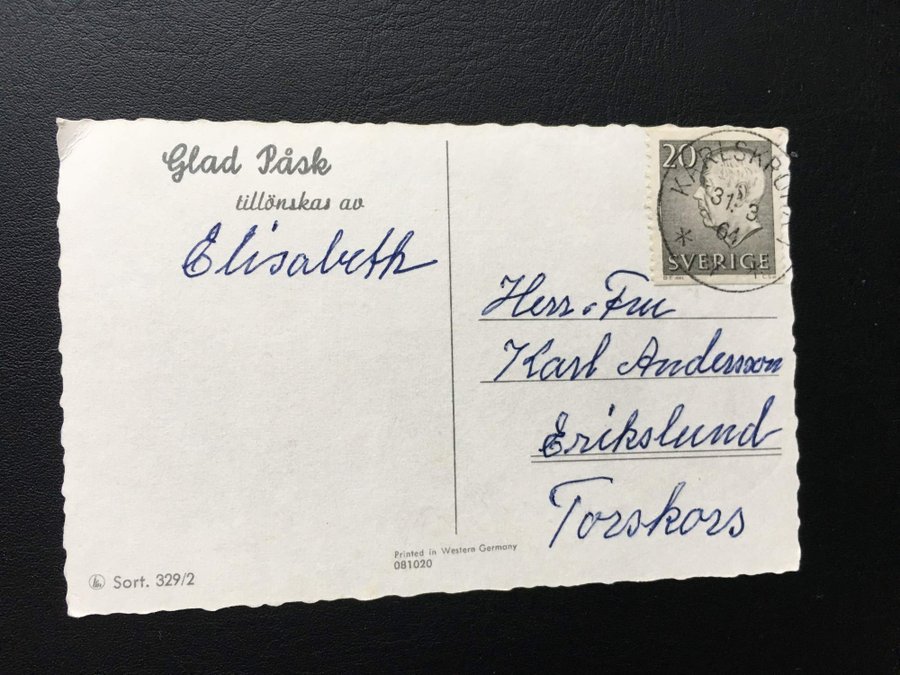 Glad Påsk
tillönskas av
Elisabeth
20
KARLSKRONA 1
31 3
64
SVERIGE
Herr o Fru
Karl Andersson
Erikslund
Torskors
Printed in Western Germany
081020
Sort. 329/2